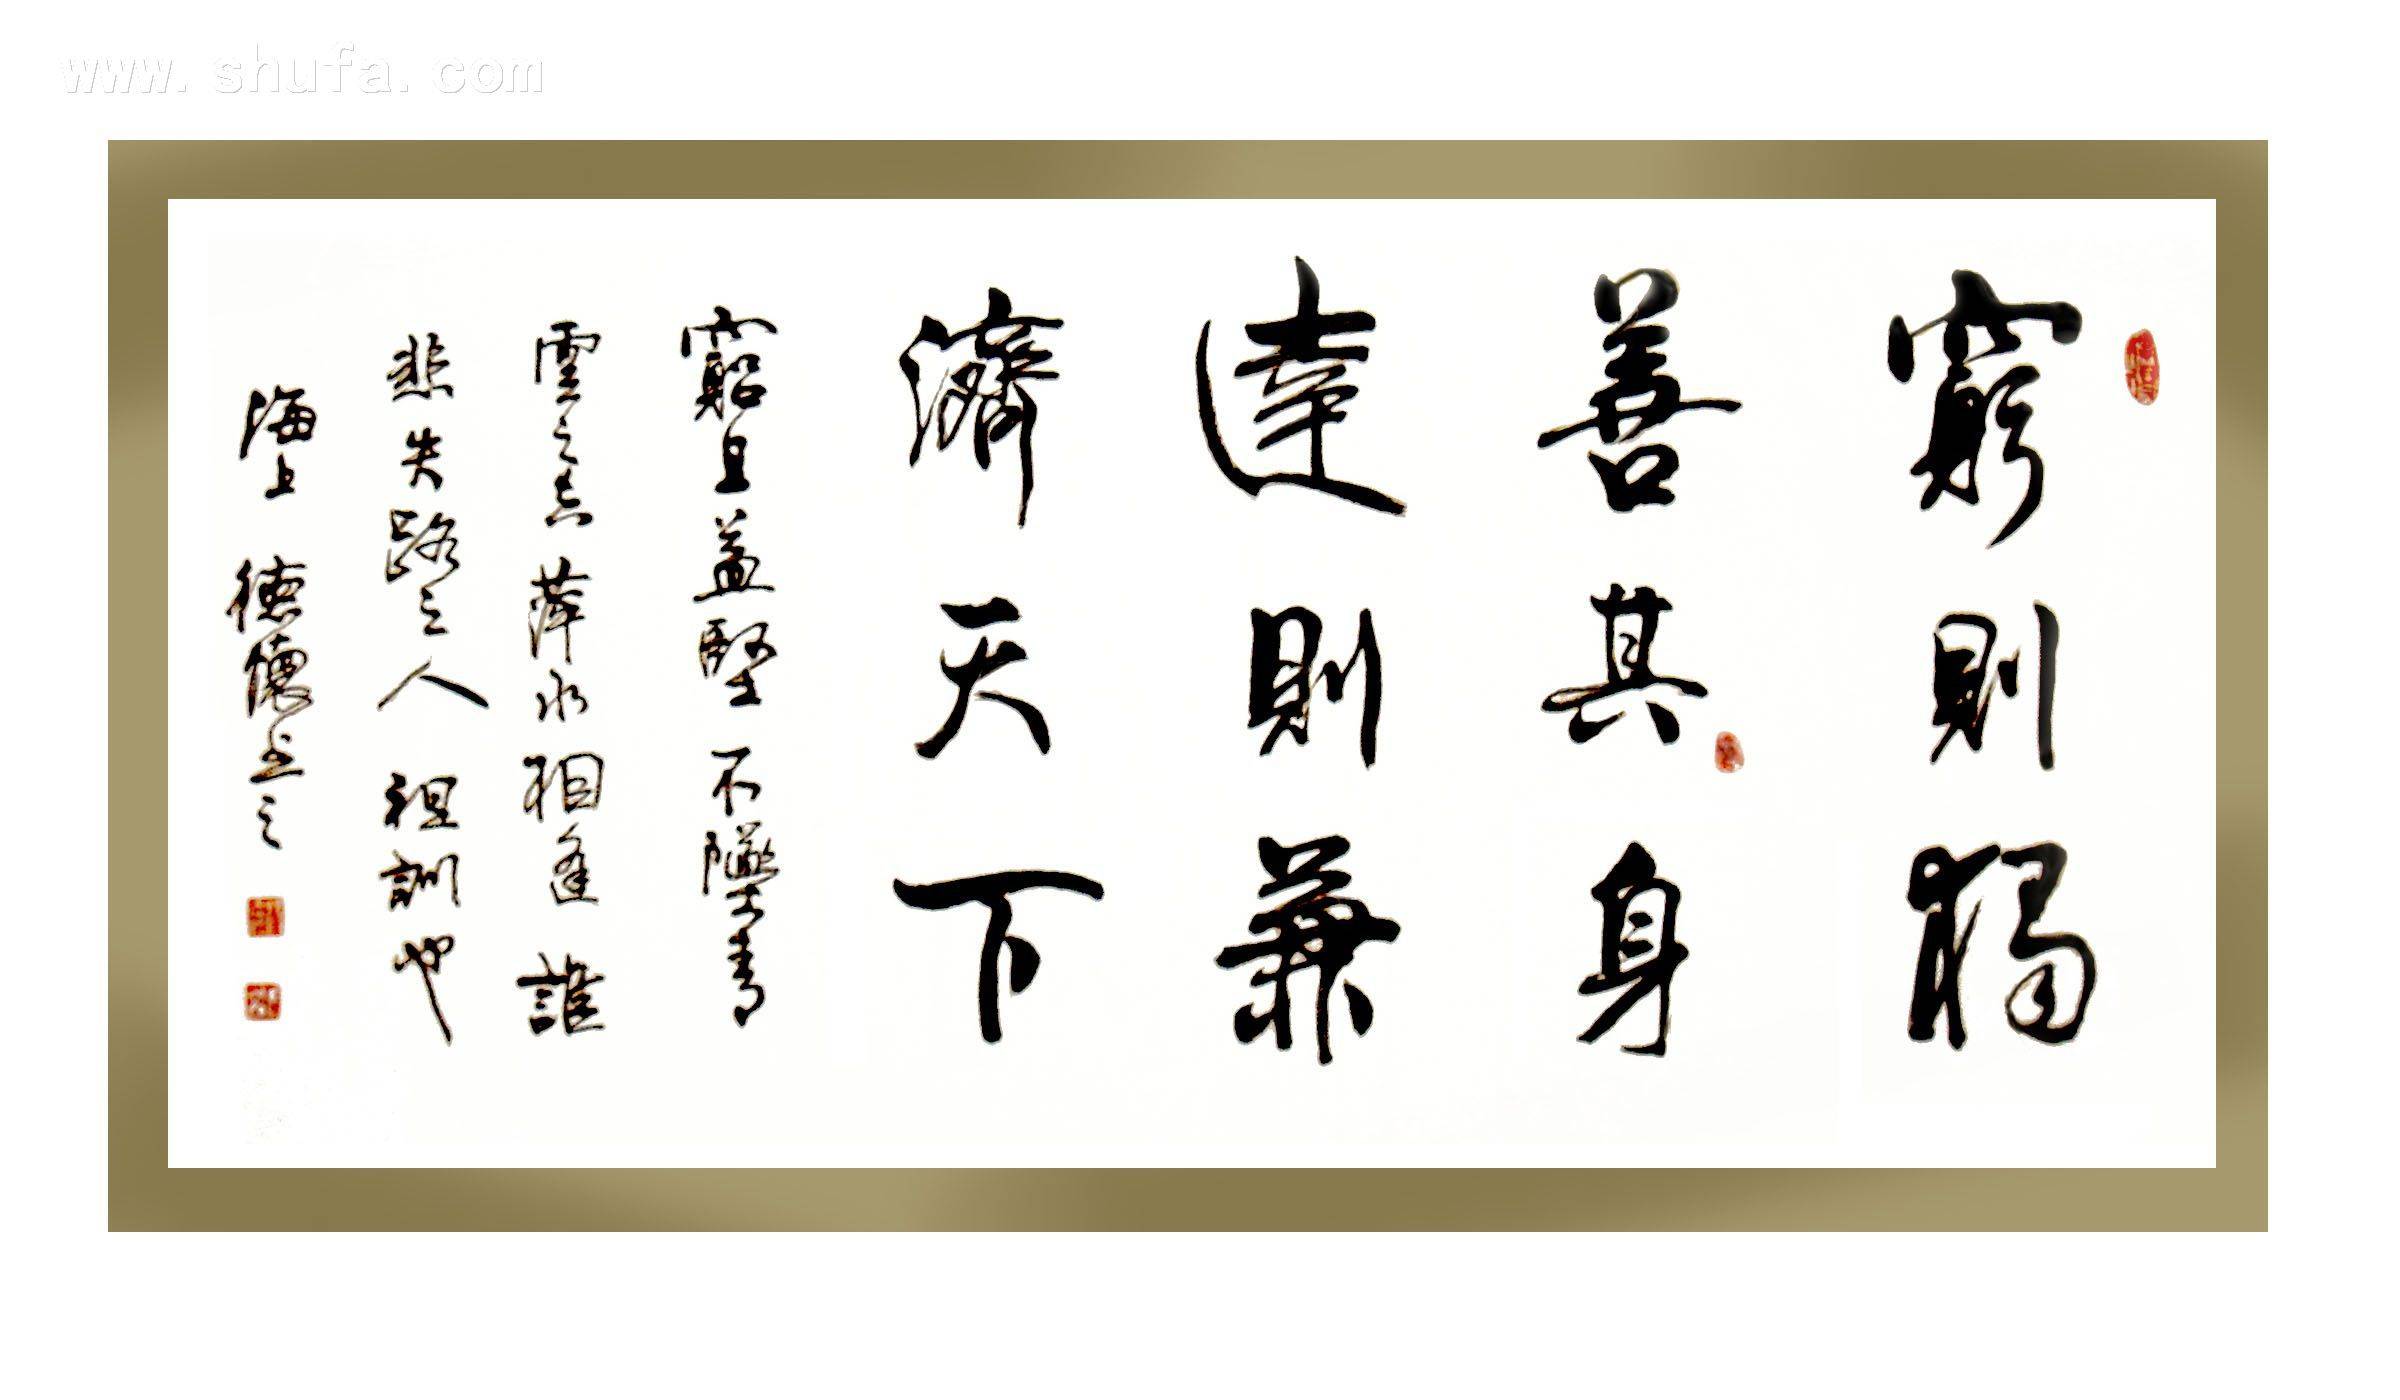 www.shufa.com
窮則獨
善其身
達則兼
濟天下
窮且益堅不墜青
雲之志萍水相逢誰
悲失路之人祖訓也
海上德懷書之